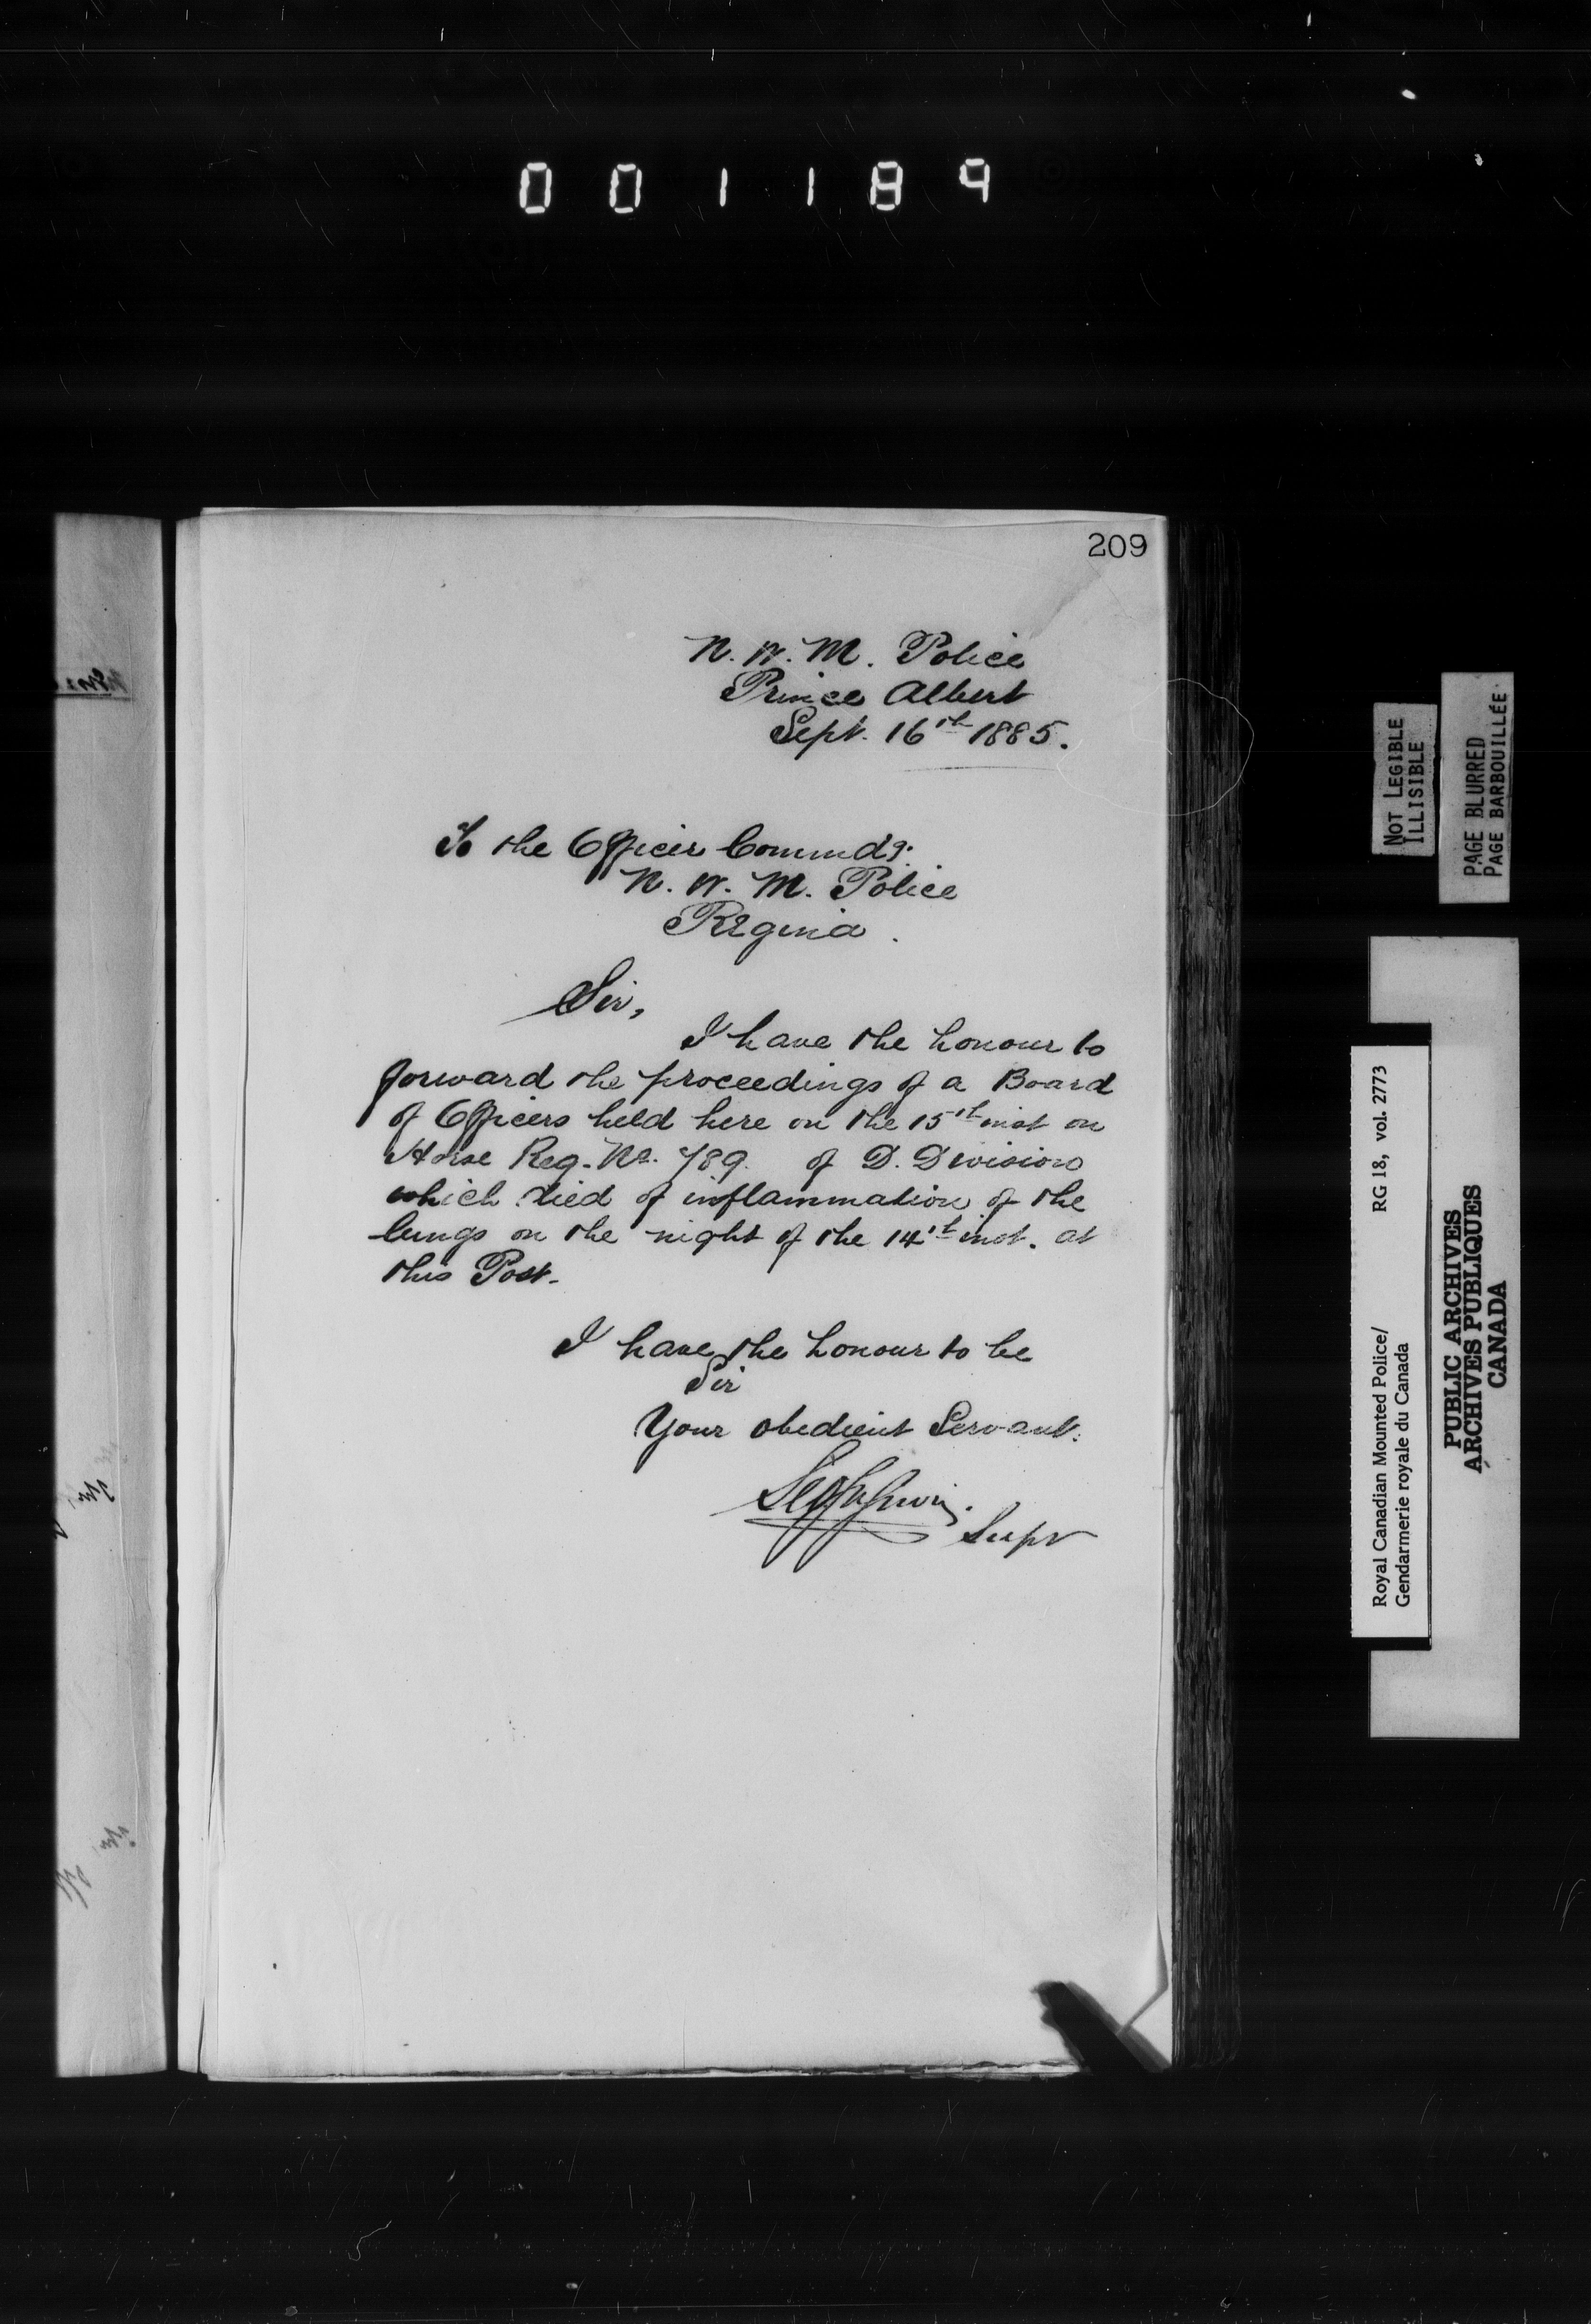 001189
209
N. W. M. Police
Prince Albert
Sept. 16th 1885.
To the Officer Commdg.
N. W. M. Police
Regina.
Sir,
I have the honour to
forward the proceedings of a Board
of Officers held here on the 15th inst on
Horse Reg. No. 789. of D. Division
which died of inflammation of the
lungs on the night of the 14th inst. at
this Post.
I have the honour to be
Sir
Your obedient Servant.
Supt
NOT LEGIBLE
ILLISIBLE
PAGE BLURRED
PAGE BARBOUILLÉE
Royal Canadian Mounted Police/ RG 18, vol. 2773
Gendarmerie royale du Canada
PUBLIC ARCHIVES
ARCHIVES PUBLIQUES
CANADA